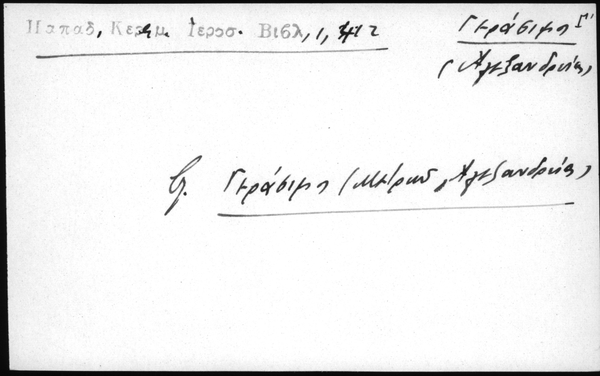 Παπαδ, Κεραμ. Ιεροσ. Βιβλ, 1, 412
Γεράσιμος Γ'
(Αλεξανδρείας)
βλ. Γεράσιμος (Αλεξανδρείας)